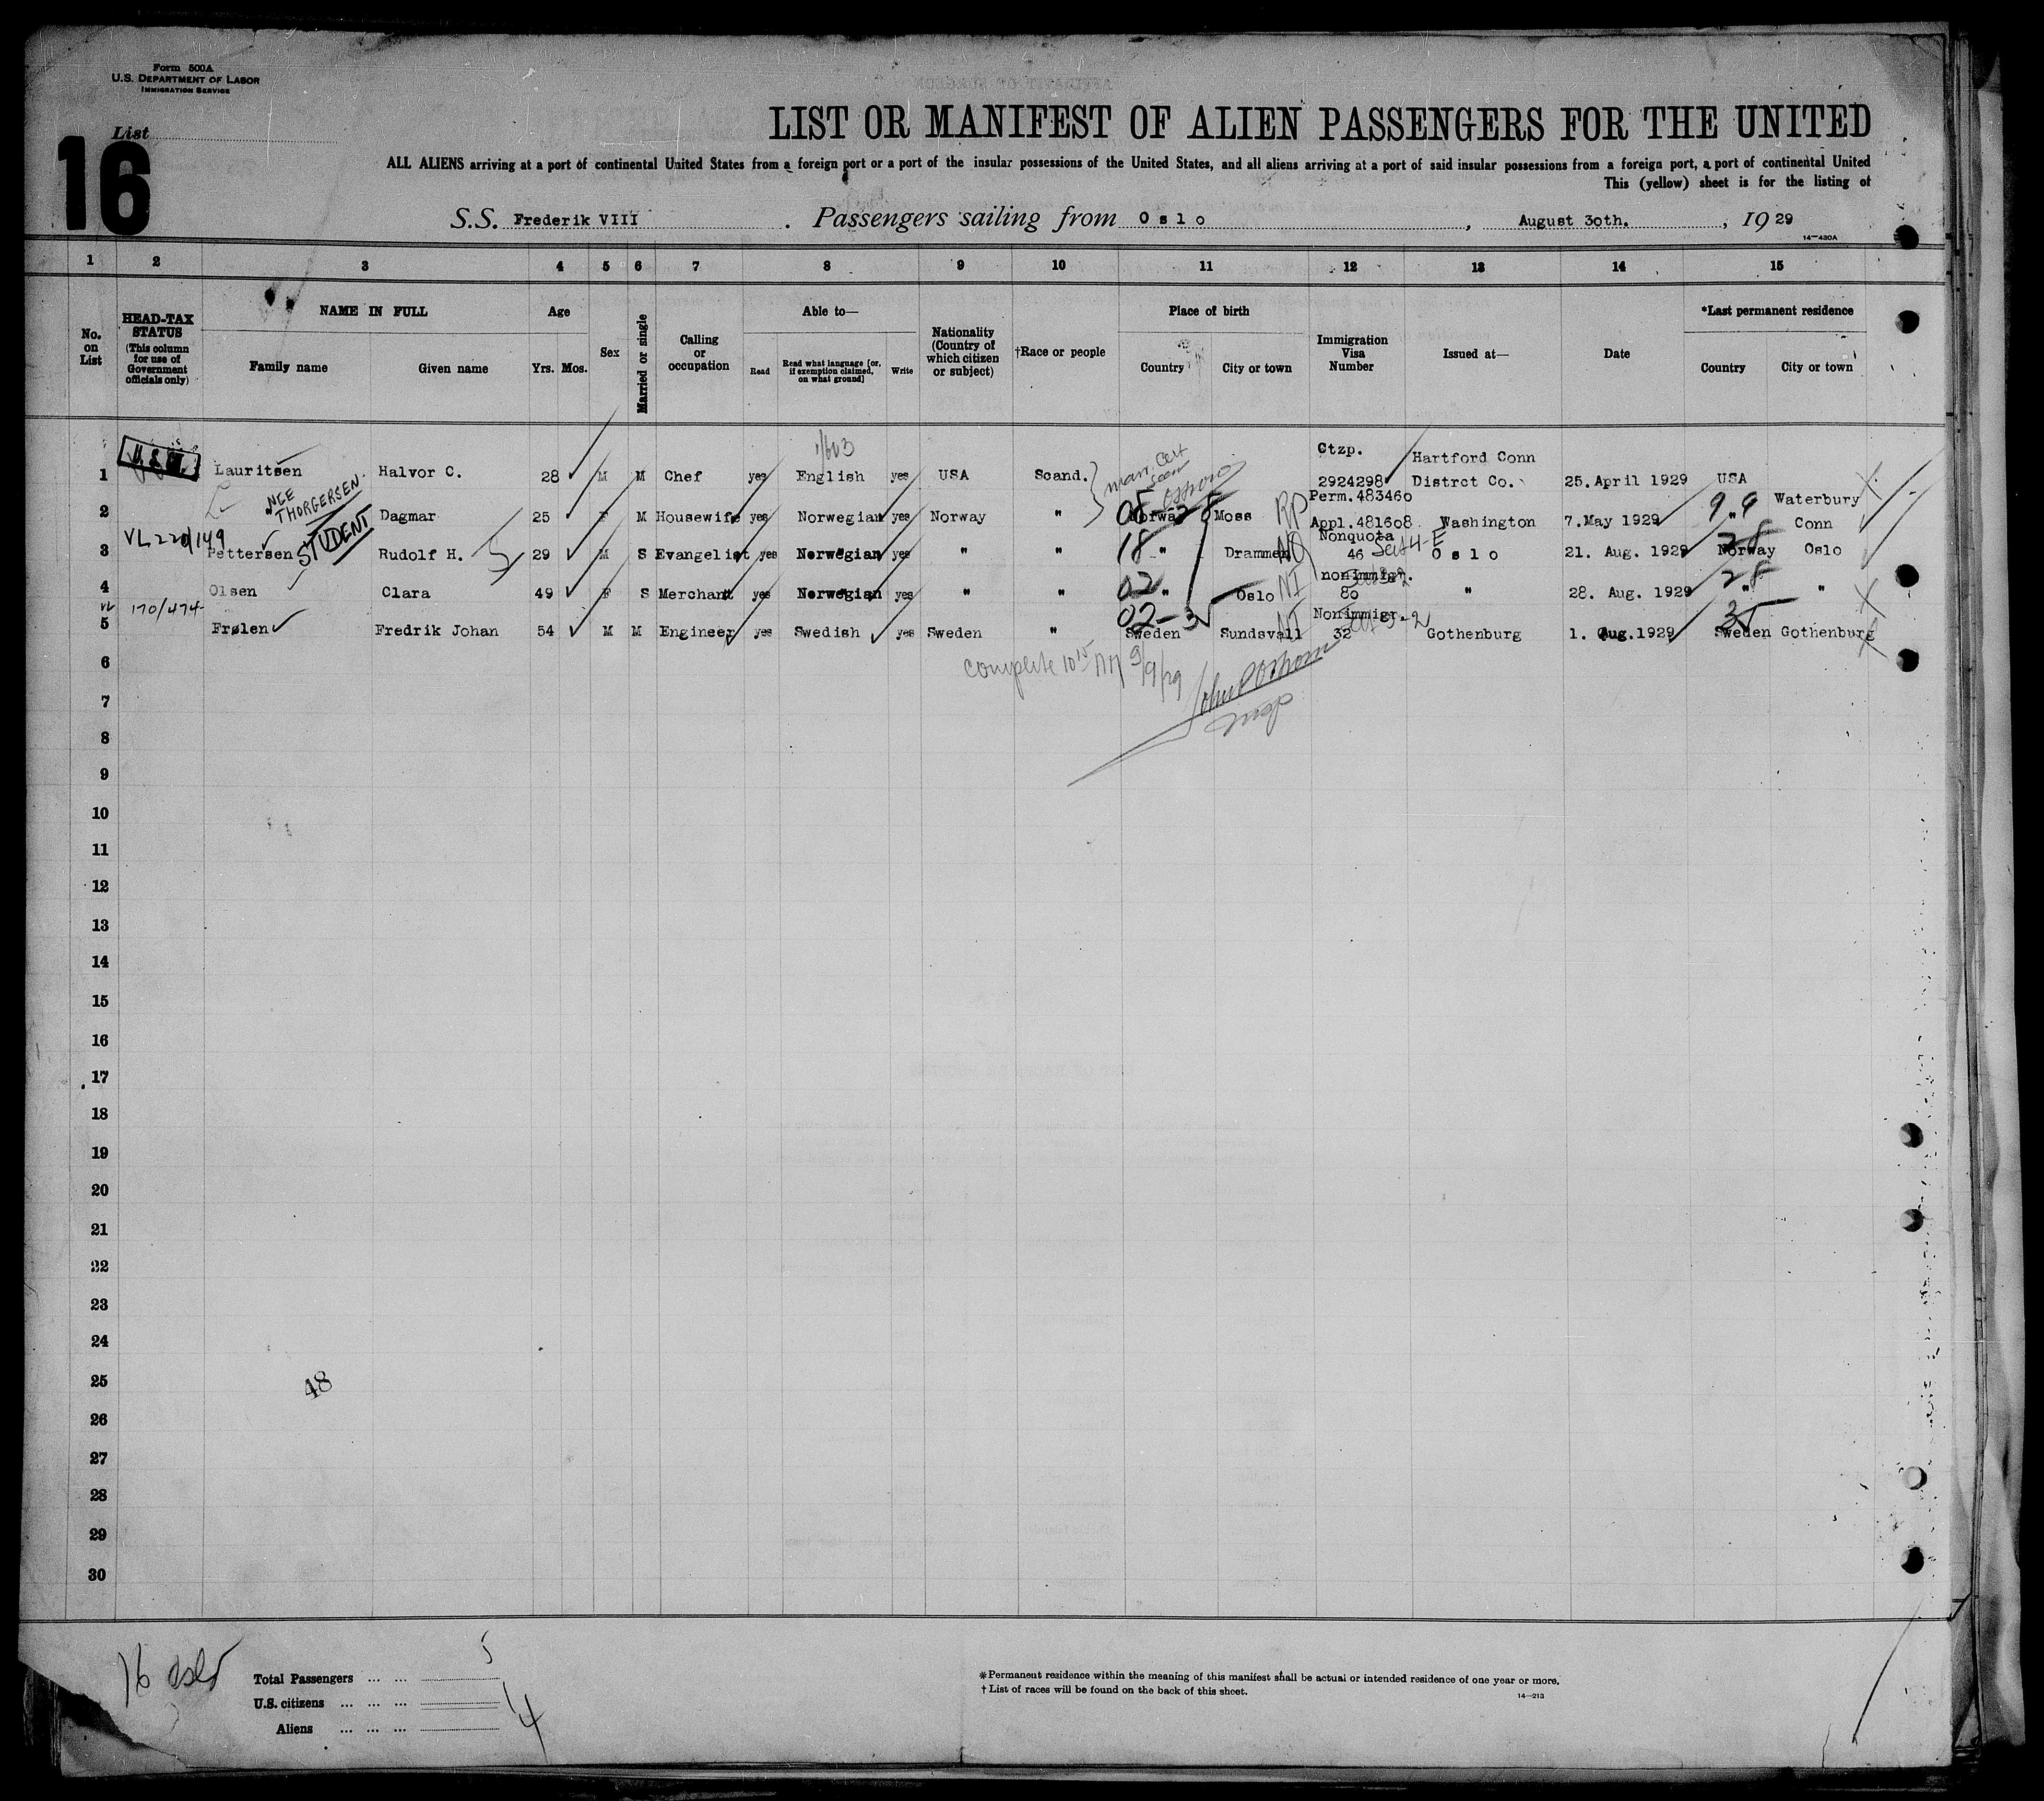 Form 500A
U.S. DEPARTMENT OF LABOR
IMMIGRATION SERVICE
List
16
LIST OR MANIFEST OF ALIEN PASSENGERS FOR THE UNITED
ALL ALIENS arriving at a port of continental United States from a foreign port or a port of the insular possessions of the United States, and all aliens arriving at a port of said insular possessions from a foreign port, a port of continental United
This (yellow) sheet is for the listing of
S.S. Frederik VIII . Passengers sailing from Oslo , August 30th. , 19 29
14—430A
1 2 3 4 5 6 7 8 9 10 11 12 13 14 15
No. on List
HEAD-TAX STATUS (This column for use of Government officials only)
NAME IN FULL
Family name Given name
Age
Yrs. Mos.
Sex
Married or single
Calling or occupation
Able to—
Read
Read what language [or, if exemption claimed, on what ground]
Write
Nationality (Country of which citizen or subject)
†Race or people
Place of birth
Country City or town
Immigration Visa Number
Issued at—
Date
*Last permanent residence
Country City or town
1 Lauritsen Halvor C. 28 M M Chef yes English yes USA Scand. Ctzp. 2924298 Hartford Conn Distrct Co. 25.April 1929 USA
marr. cert seen
NEE THORGERSEN
2 Dagmar 25 F M Housewife yes Norwegian yes Norway " Norway Moss RP Perm.483460 Appl.481608 Washington 7.May 1929 " Waterbury Conn
05-28
99
VL 220/149
STUDENT
3 Pettersen Rudolf H. 29 M S Evangelist yes Norwegian yes " " " Drammen NQ Nonquota 46 Sec 4-E Oslo 21. Aug. 1929 Norway Oslo
18
28
4 Olsen Clara 49 F S Merchant yes Norwegian yes " " " Oslo NI nonimmigr. 80 " 28. Aug. 1929 " "
02
28
170/474
5 Frølen Fredrik Johan 54 M M Engineer yes Swedish yes Sweden " Sweden Sundsvall NI Nonimmigr. 32 Gothenburg 1. Aug.1929 Sweden Gothenburg
02-3
complete 10 15 AM 9/9/29
John P Osborn
Insp
6
7
8
9
10
11
12
13
14
15
16
17
18
19
20
21
22
23
24
25
48
26
27
28
29
30
16 Oslo
Total Passengers ... ... 5
U.S. citizens ... ... ... 1
Aliens ... ... ... 4
*Permanent residence within the meaning of this manifest shall be actual or intended residence of one year or more.
† List of races will be found on the back of this sheet.
14—213